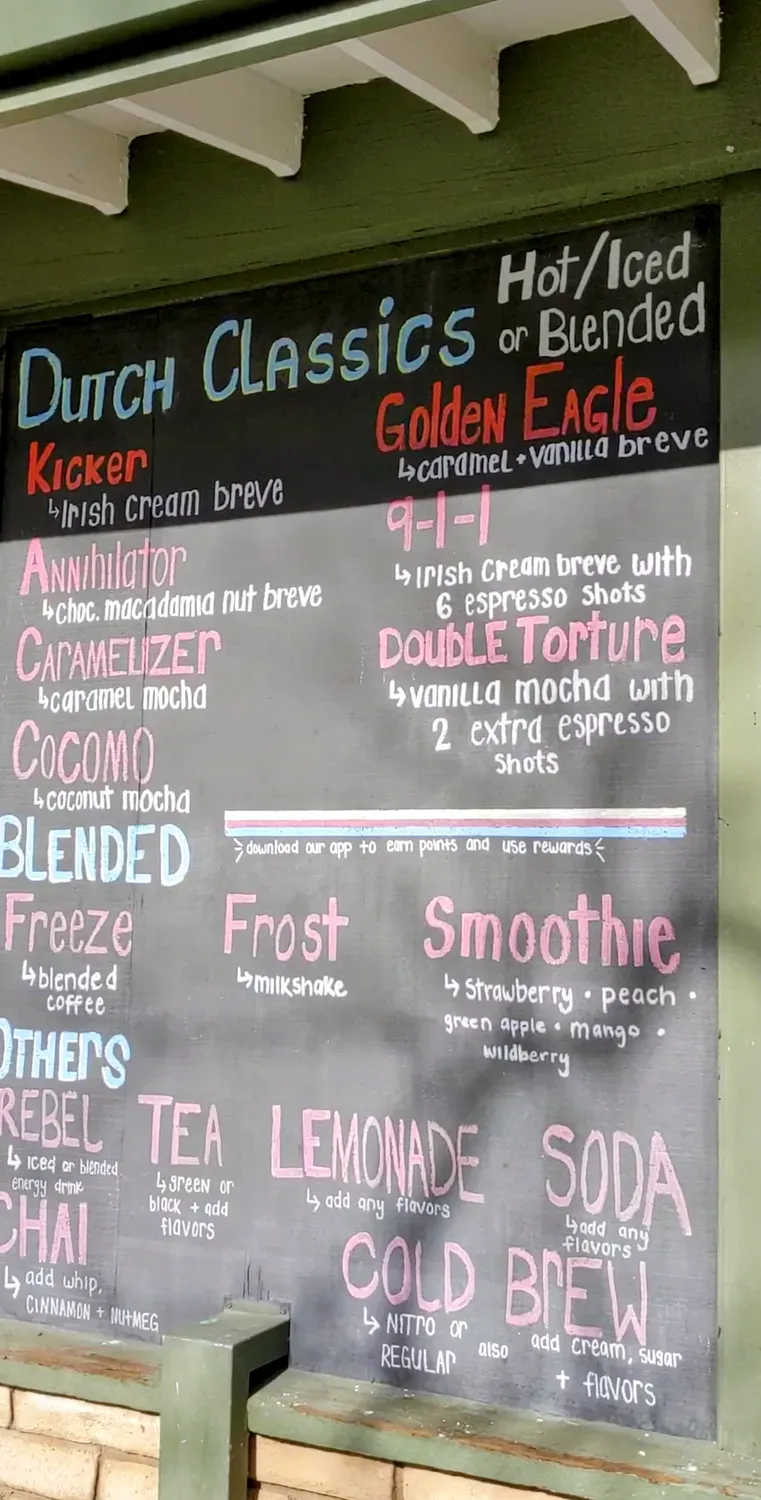 Dutch Classics
Hot/Iced
or Blended
Kicker
↳Irish cream breve
Annihilator
↳choc. macadamia nut breve
Caramelizer
↳caramel mocha
Cocomo
↳coconut mocha
Golden Eagle
↳caramel + vanilla breve
9-1-1
↳Irish cream breve with
6 espresso shots
Double Torture
↳vanilla mocha with
2 extra espresso
shots
download our app to earn points and use rewards
BLENDED
Freeze
↳blended
coffee
Frost
↳milkshake
Smoothie
↳Strawberry • peach •
green apple • mango •
wildberry
OTHERS
REBEL
↳Iced or blended
energy drink
TEA
↳green or
black + add
flavors
LEMONADE
↳add any flavors
SODA
↳add any
flavors
CHAI
↳add whip,
CINNAMON + NUTMEG
COLD BREW
↳NITRO or
REGULAR
also
add cream, sugar
+ flavors